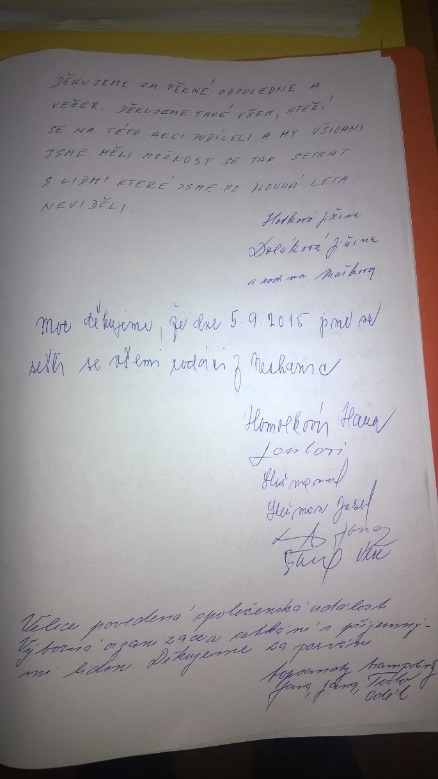 DĚKUJEME ZA PĚKNÉ ODPOLEDNE A
VEČER. DĚKUJEME TAKÉ VŠEM, KTEŘÍ
SE NA TÉTO AKCI PODÍLELI A MY VŠICHNI
JSME MĚLI MOŽNOST SE TAK SETKAT
S LIDMI KTERÉ JSME PO DLOUHÁ LÉTA
NEVIDĚLI.
Jiřina
Doláková Jiřina
a rodina Maškova
Moc děkujeme, že dne 5.9.2015 jsme se
sešli se všemi rodáci z Nechanic
Homolková Hana
Josef
Velice povedená společenská událost
Výborná organizace a setkání s příjemný-
mi lidmi Děkujeme za pozvání
Jana, Jana,